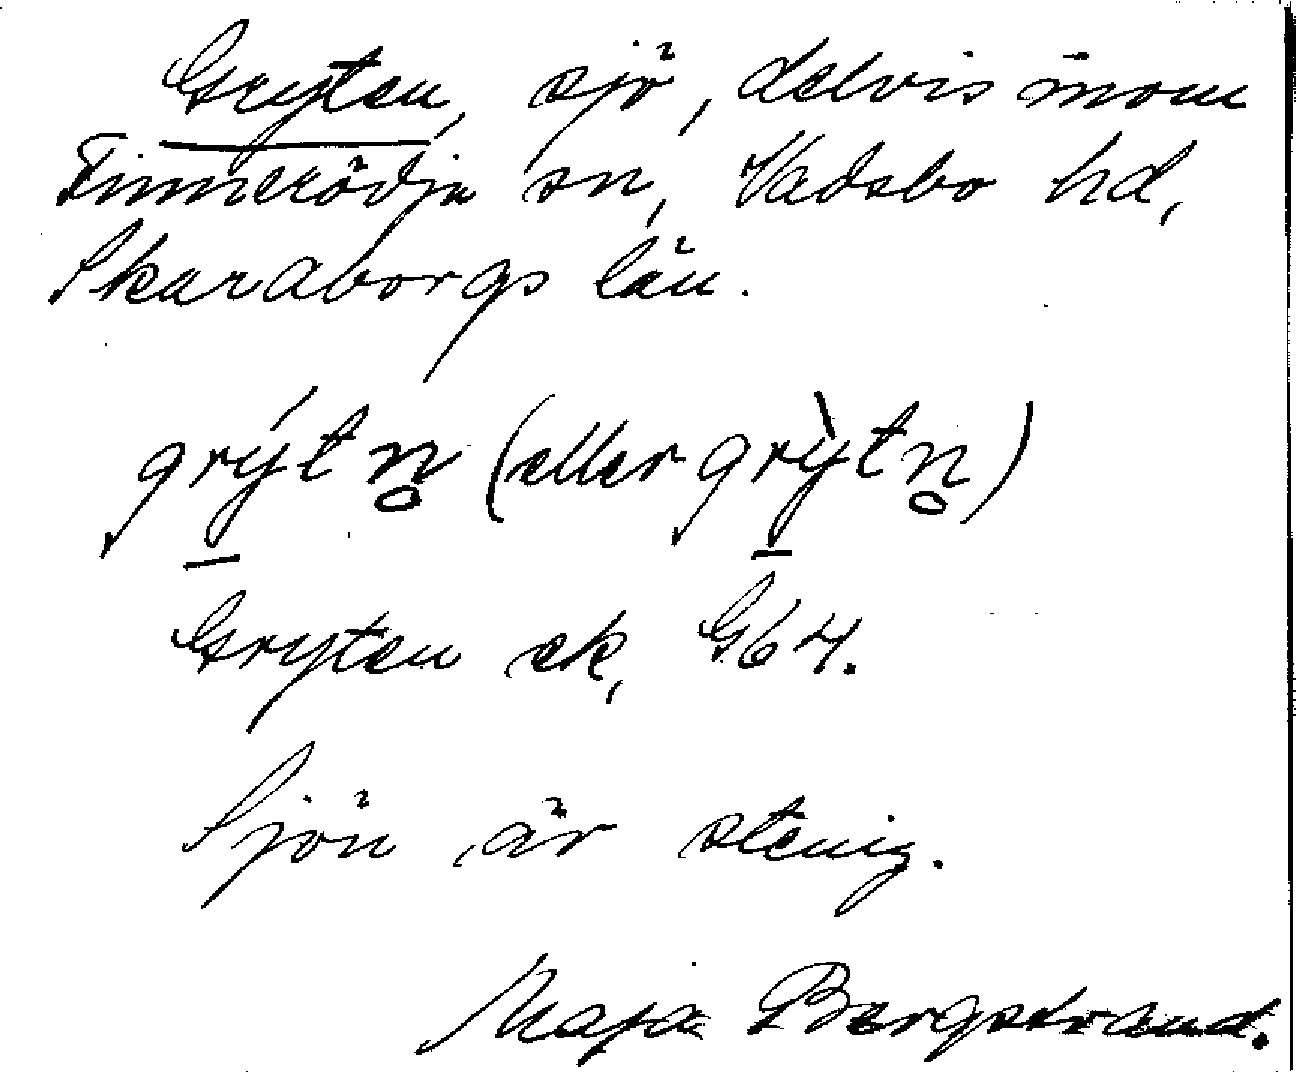 Gryten, sjö, delvis inom
Finnerödja sn, Vadsbo hd,
Skaraborgs län.
grýtn̥ (eller grỳtn̥)
Gryten ek, G64.
Sjön är stenig.
Maja Bergstrand.